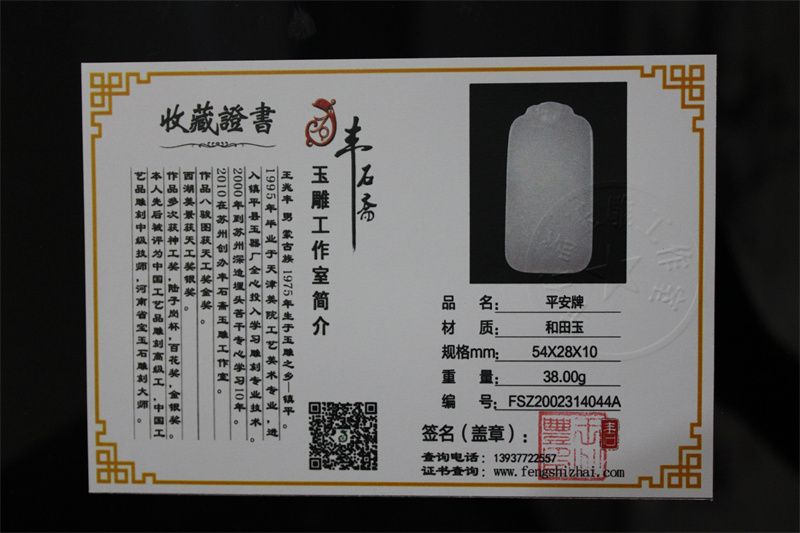 收藏證書
丰石斋
玉雕工作室简介
王兆丰 男 蒙古族 1975年生于玉雕之乡—镇平。
1995年毕业于天津美院工艺美术专业，进
入镇平县玉器厂全心投入学习雕刻专业技术。
2000年到苏州深造埋头苦干专心学习10年。
2010在苏州创办丰石斋玉雕工作室。
作品八骏图获天工奖金奖。
西湖美景获天工奖银奖。
作品多次获神工奖，陆子岗杯，百花奖，金银奖。
本人先后被评为中国工艺品雕刻高级工，中国工
艺品雕刻中级技师，河南省宝玉石雕刻大师。
品 名： 平安牌
材 质： 和田玉
规格mm： 54X28X10
重 量： 38.00g
编 号： FSZ2002314044A
签名（盖章）：
查询电话：13937722557
证书查询：www.fengshizhai.com